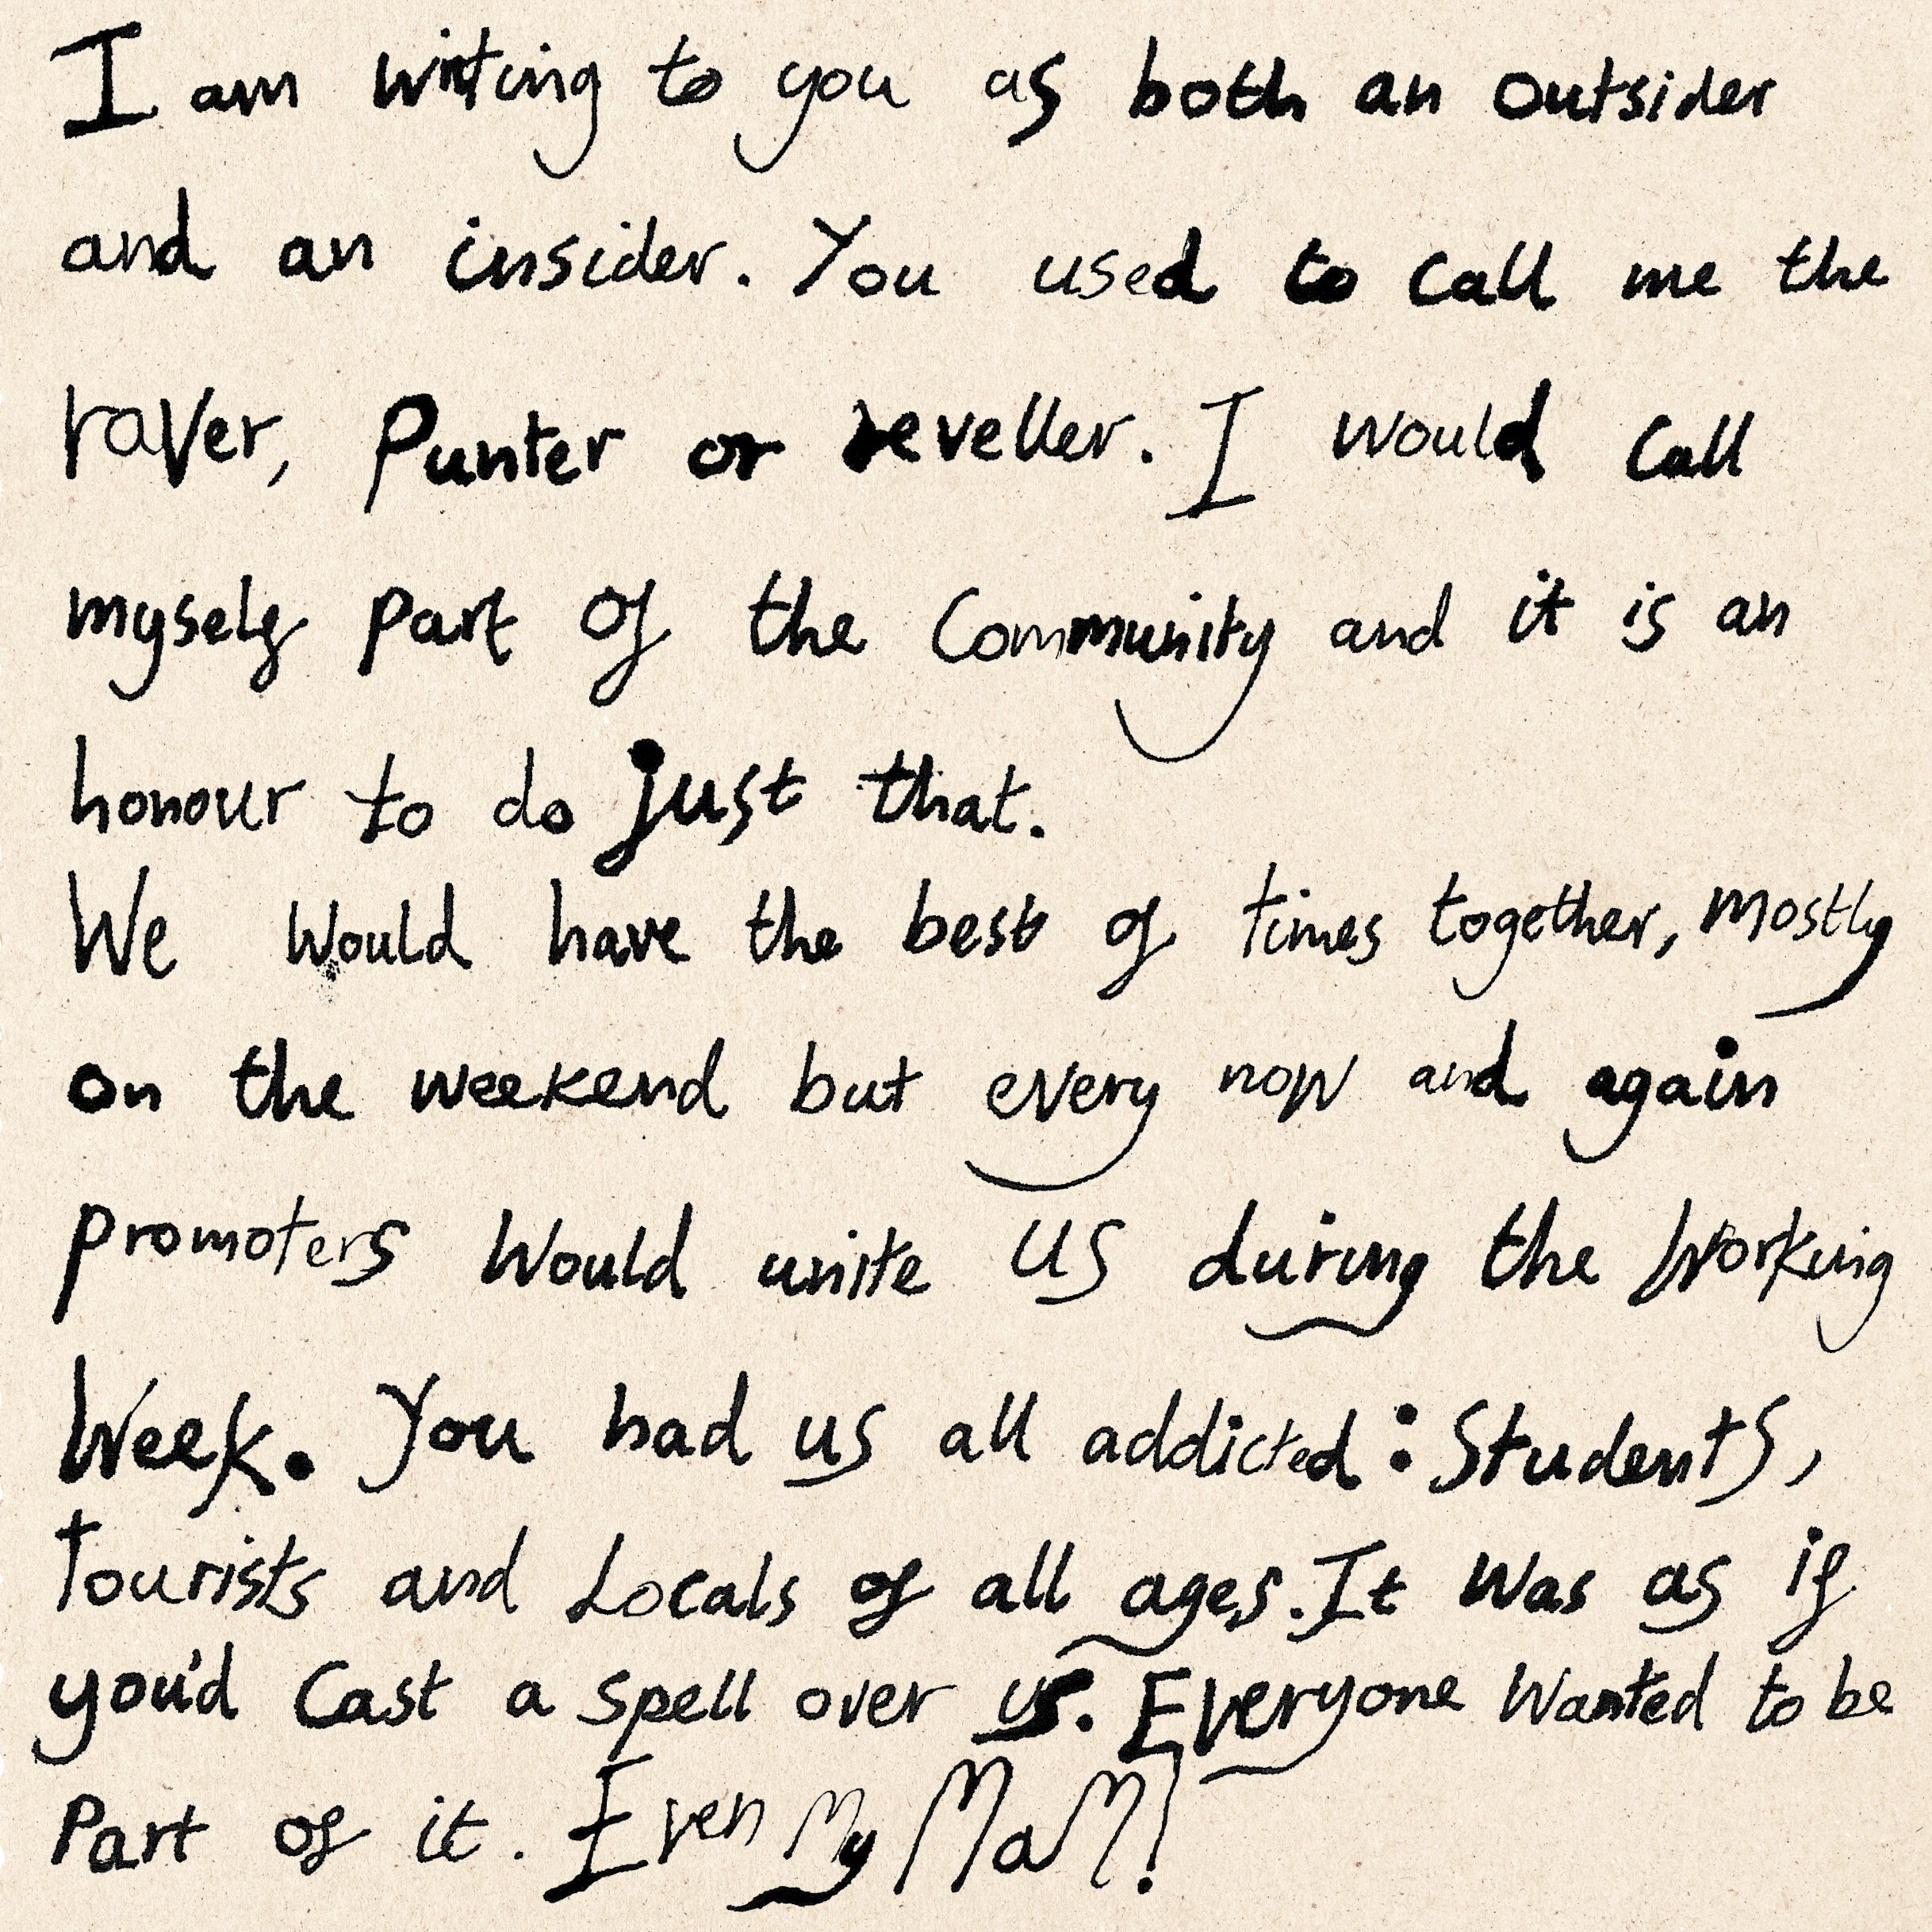 I am writing to you as both an outsider
and an insider. You used to call me the
raver, Punter or reveller. I would call
myself part of the Community and it is an
honour to do just that.
We would have the best of times together, mostly
on the weekend but every now and again
promoters would unite us during the working
week. You had us all addicted: Students,
Tourists and Locals of all ages. It was as if
you'd cast a spell over us. Everyone wanted to be
Part of it. Even My MaM!